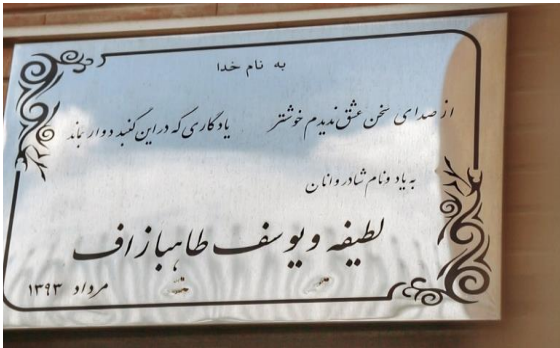 به نام خدا
از صدای سخن عشق ندیدم خوشتر یادگاری که در این گنبد دوار بماند
به یاد و نام شادروانان
لطیفه و یوسف طاهباز اف
مرداد ۱۳۹۳